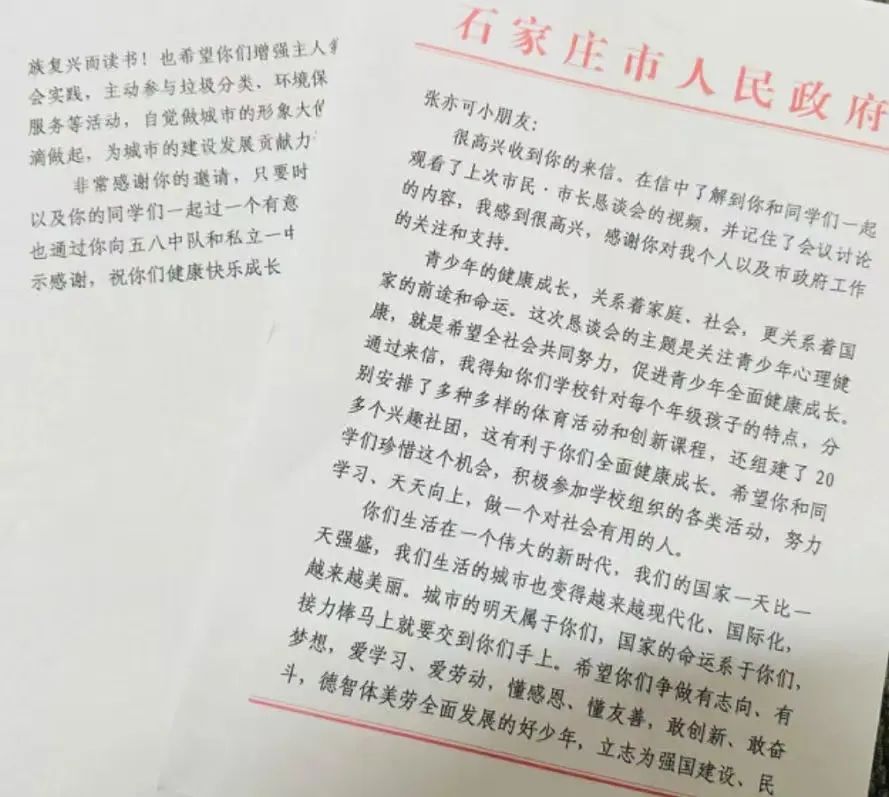 石家庄市人民政府
张亦可小朋友：
很高兴收到你的来信。在信中了解到你和同学们一起
观看了上次市民·市长恳谈会的视频，并记住了会议讨论
的内容，我感到很高兴，感谢你对我个人以及市政府工作
的关注和支持。
青少年的健康成长，关系着家庭、社会，更关系着国
家的前途和命运。这次恳谈会的主题是关注青少年心理健
康，就是希望全社会共同努力，促进青少年全面健康成长。
通过来信，我得知你们学校针对每个年级孩子的特点，分
别安排了多种多样的体育活动和创新课程，还组建了 20
多个兴趣社团，这有利于你们全面健康成长。希望你和同
学们珍惜这个机会，积极参加学校组织的各类活动，努力
学习、天天向上，做一个对社会有用的人。
你们生活在一个伟大的新时代，我们的国家一天比一
天强盛，我们生活的城市也变得越来越现代化、国际化，
越来越美丽。城市的明天属于你们，国家的命运系于你们，
接力棒马上就要交到你们手上。希望你们争做有志向、有
梦想，爱学习、爱劳动，懂感恩、懂友善，敢创新、敢奋
斗，德智体美劳全面发展的好少年，立志为强国建设、民
族复兴而读书！也希望你们增强主人
会实践，主动参与垃圾分类、环境保
服务等活动，自觉做城市的形象大使
滴做起，为城市的建设发展贡献力
非常感谢你的邀请，只要时
以及你的同学们一起过一个有意
也通过你向五八中队和私立一中
示感谢，祝你们健康快乐成长